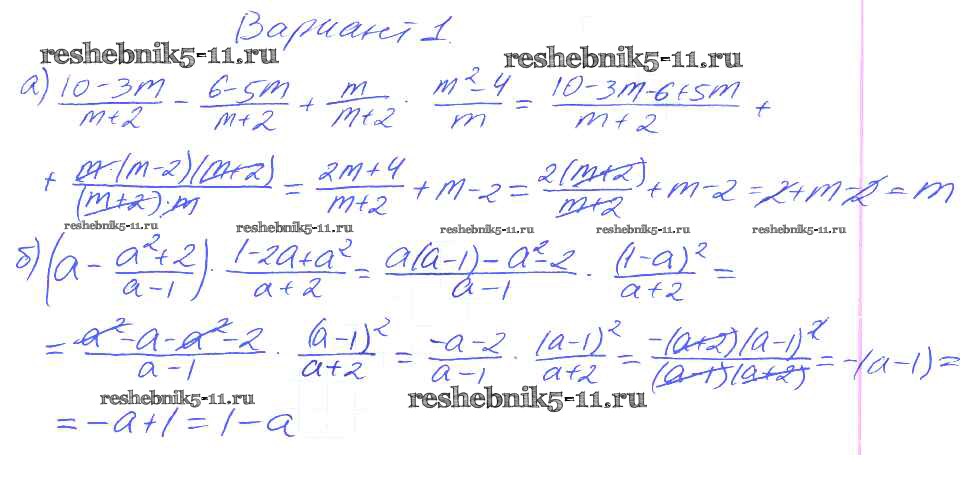 Вариант 1.
reshebnik5-11.ru reshebnik5-11.ru
а) (10-3m)/(m+2) - (6-5m)/(m+2) + m/(m+2) · (m²-4)/m = (10-3m-6+5m)/(m+2) +
+ (m·(m-2)(m+2))/((m+2)·m) = (2m+4)/(m+2) + m-2 = (2(m+2))/(m+2) + m-2 = 2+m-2 = m
reshebnik5-11.ru reshebnik5-11.ru reshebnik5-11.ru reshebnik5-11.ru reshebnik5-11.ru
б) (a - (a²+2)/(a-1)) · (1-2a+a²)/(a+2) = (a(a-1)-a²-2)/(a-1) · (1-a)²/(a+2) =
= (a²-a-a²-2)/(a-1) · (a-1)²/(a+2) = (-a-2)/(a-1) · (a-1)²/(a+2) = (-(a+2)(a-1)²)/((a-1)(a+2)) = -(a-1) =
reshebnik5-11.ru reshebnik5-11.ru
= -a+1 = 1-a